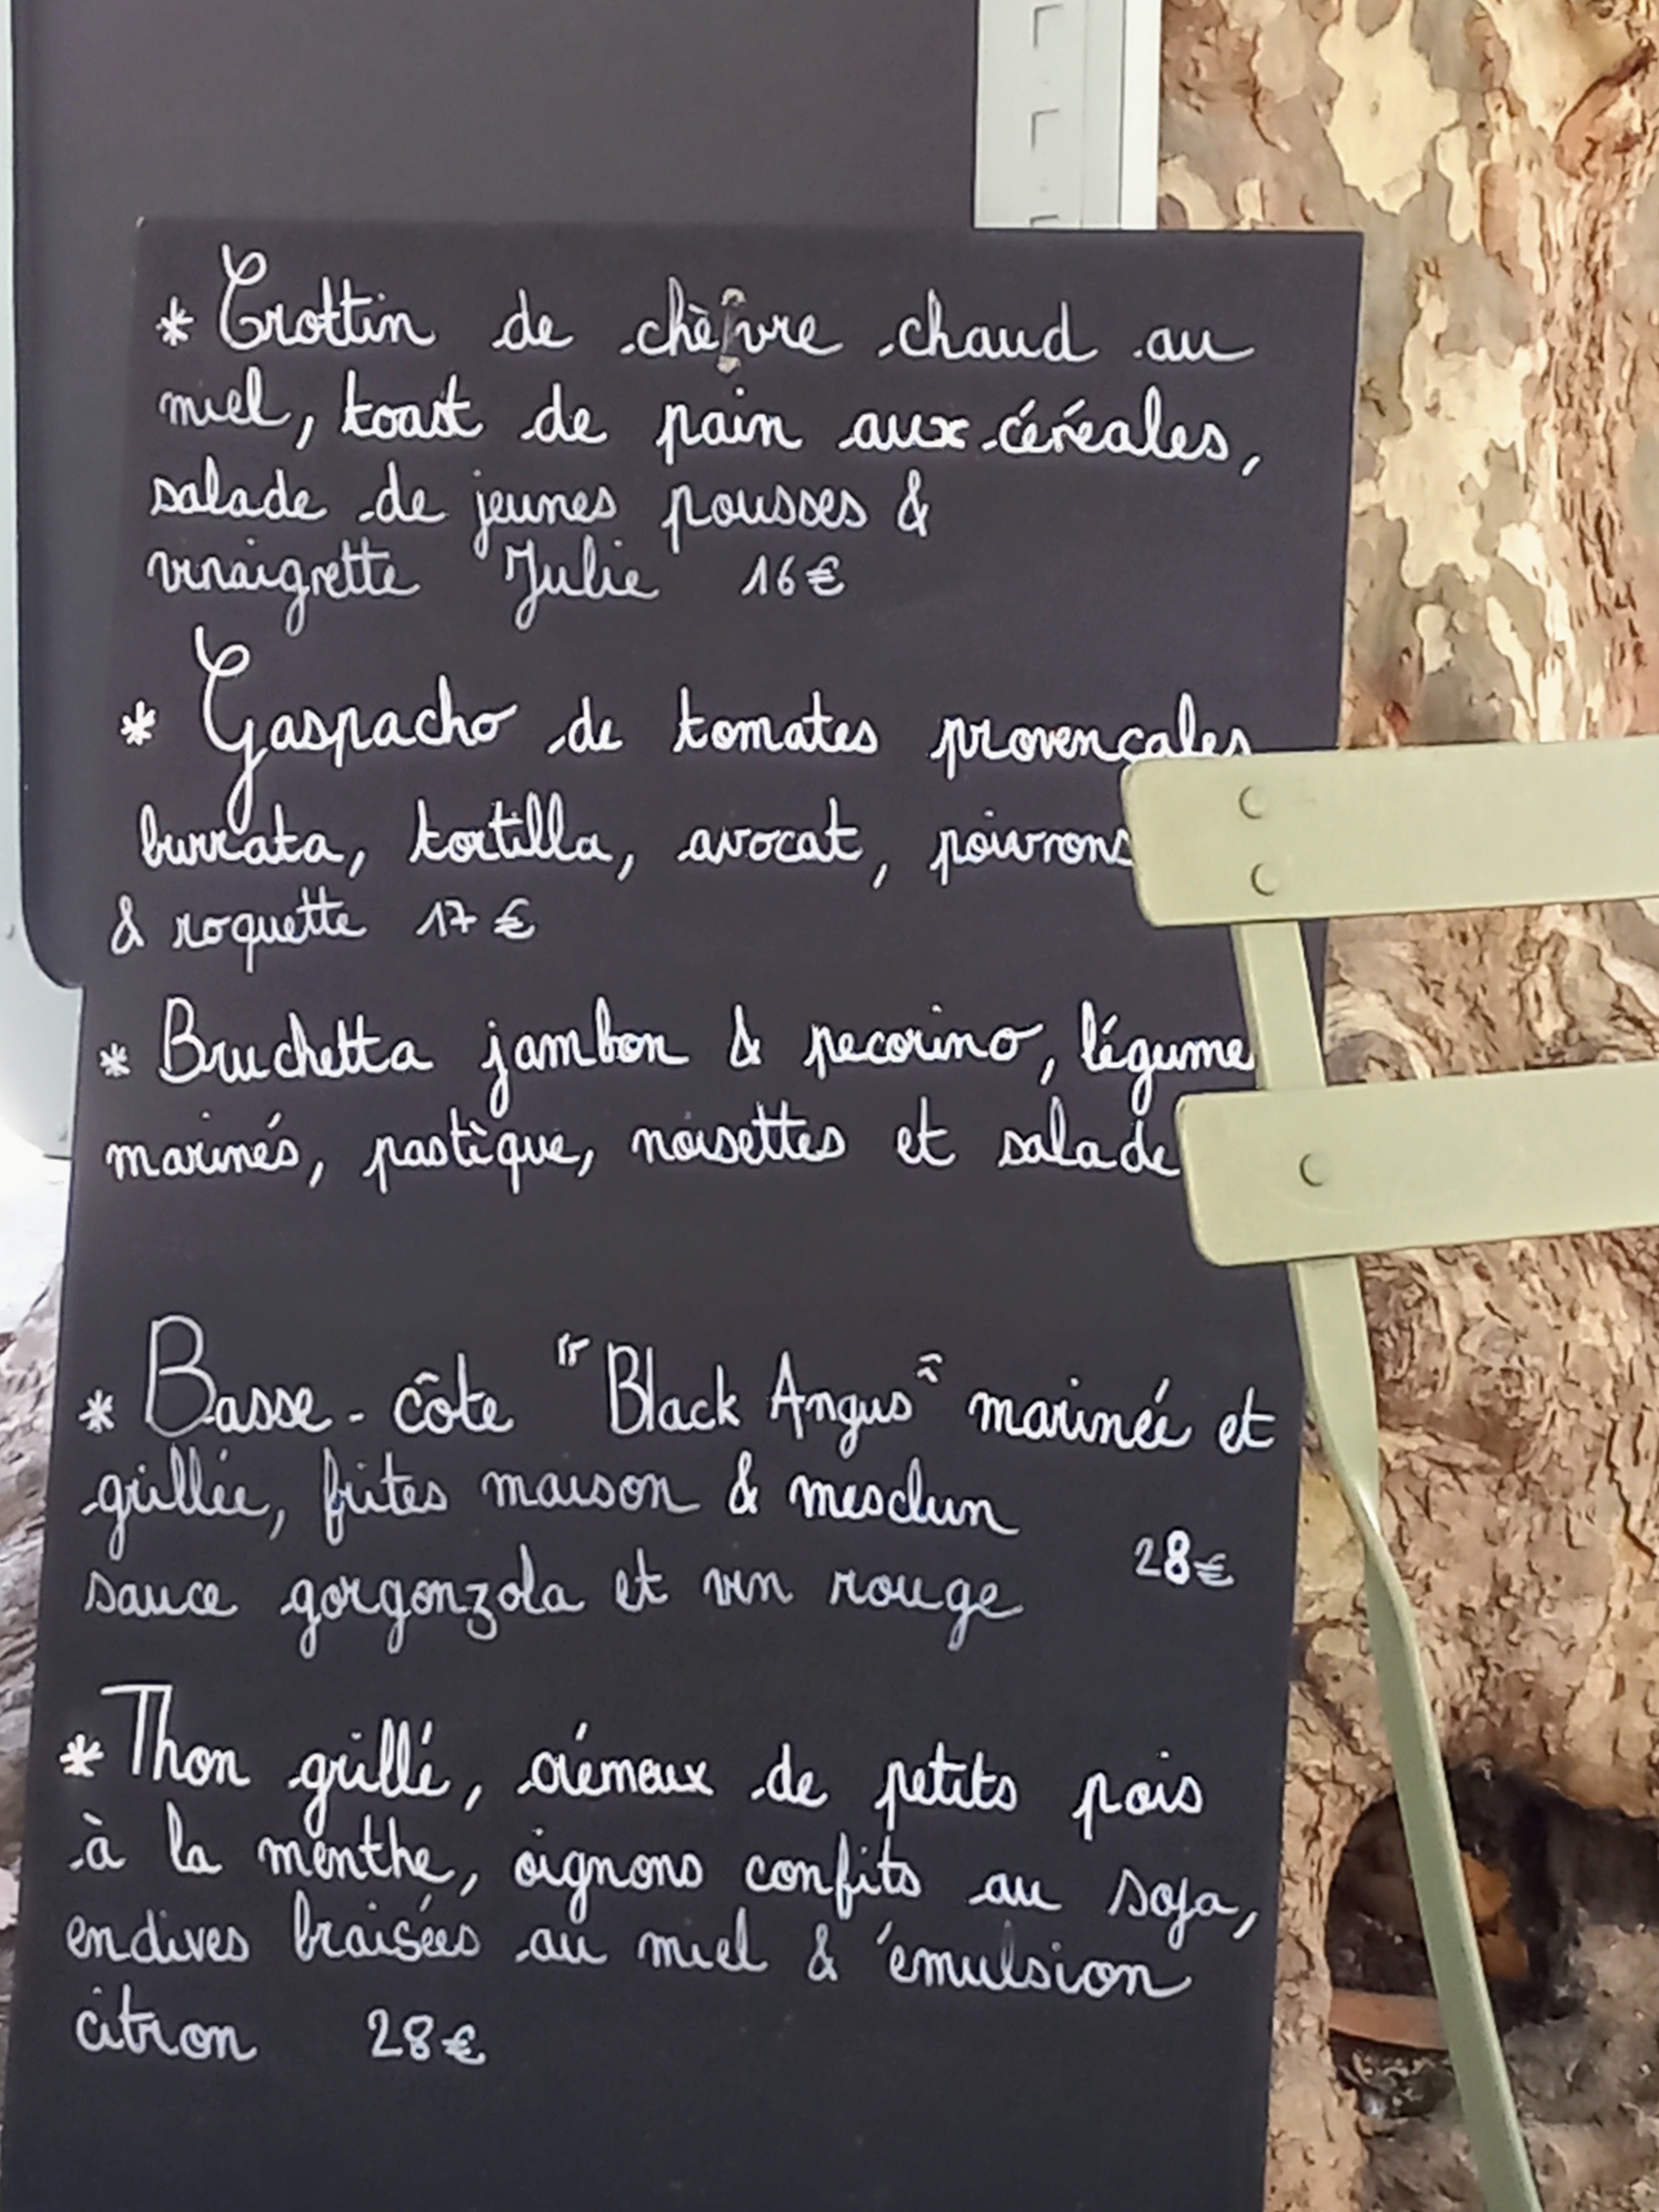 * Crottin de chèvre chaud au
miel, toast de pain aux céréales,
salade de jeunes pousses &
vinaigrette "Julie" 16€
* Gaspacho de tomates provençales
burrata, tortilla, avocat, poivrons
& roquette 17€
* Bruchetta jambon & pecorino, légume
marinés, pastèque, noisettes et salade
* Basse-côte "Black Angus" marinée et
grillée, frites maison & mesclun
sauce gorgonzola et vin rouge 28€
* Thon grillé, crémeux de petits pois
à la menthe, oignons confits au soja,
endives braisées au miel & émulsion
citron 28€